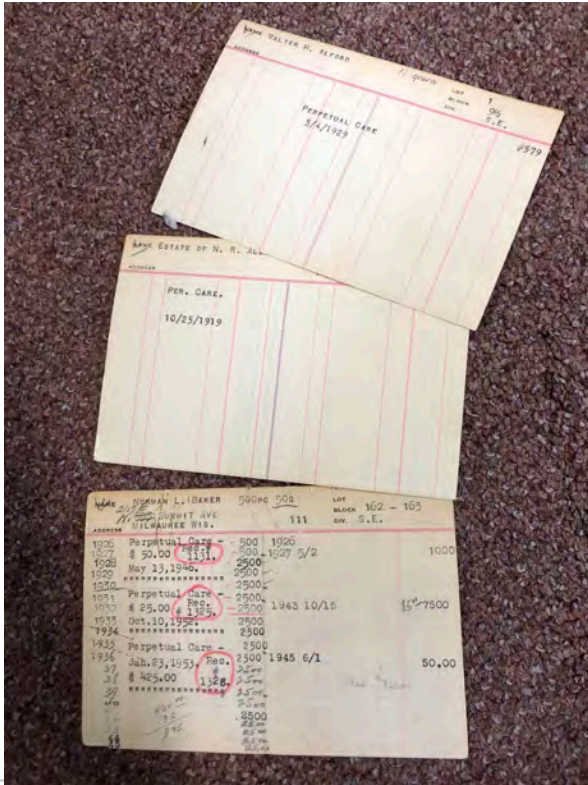 NAME WALTER H. ALFORD LOT 1
ADDRESS BLOCK
DIV. S.E.
PERPETUAL CARE #579
5/4/1929
NAME ESTATE OF N. R.
ADDRESS
PER. CARE.
10/25/1919
NAME NORMAN L. BAKER 500PC 500 LOT
SUMMIT AVE BLOCK 162 - 163
ADDRESS MILWAUKEE WIS. 111 DIV. S.E.
1926 Perpetual Care - 500 1926
1927 $ 50.00 Rec.# 1131. 500 1927 5/2 1000
1928 May 13,1946. 2500
1929 ************** 2500
1930 2500
1931 Perpetual Care - 2500
1932 $ 25.00 Rec. # 1325. 2500 1943 10/15 7500
1933 Oct.10,1952. 2500
1934 ************** 2500
1935 Perpetual Care - 2500
1936 Jan.23,1953. Rec. 2500 1945 6/1 50.00
37 # 2500
38 $ 425.00 1328. 2500
39 2500
2500
.2500